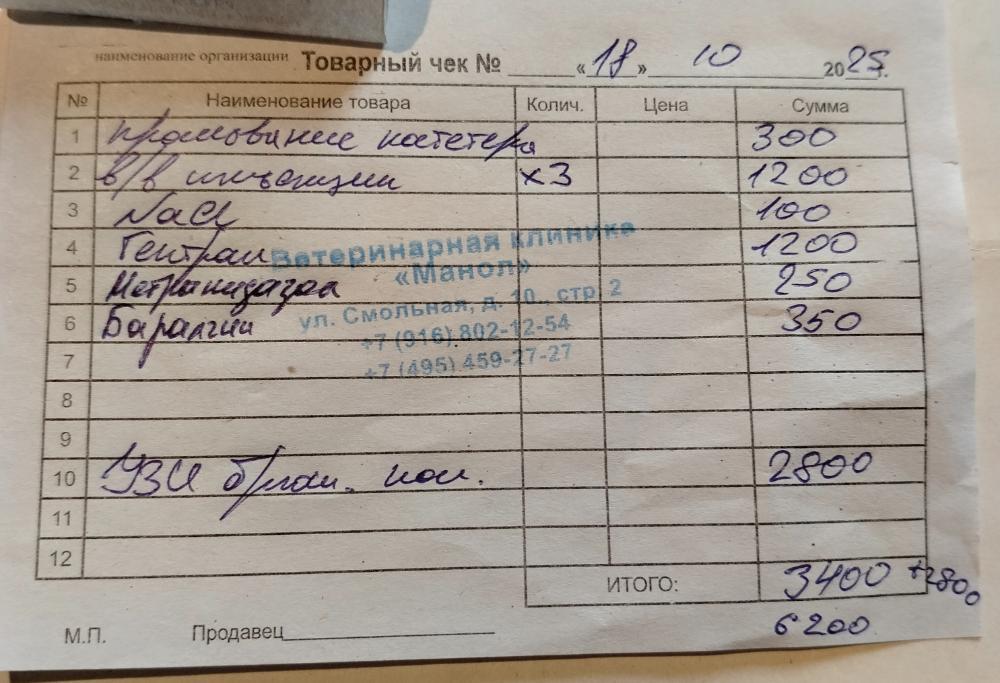 наименование организации Товарный чек № «18» 10 2025 г.
№ Наименование товара Колич. Цена Сумма
1 промывание катетера 300
2 в/в инъекции х3 1200
3 NaCl 100
4 Гентрал 1200
5 Метронидазол 250
6 Баралгин 350
Ветеринарная клиника
«Манол»
ул. Смольная, д. 10., стр. 2
+7 (916) 802-12-54
+7 (495) 459-27-27
7
8
9
10 УЗИ пол. 2800
11
12
ИТОГО: 3400 +2800
6200
М.П. Продавец